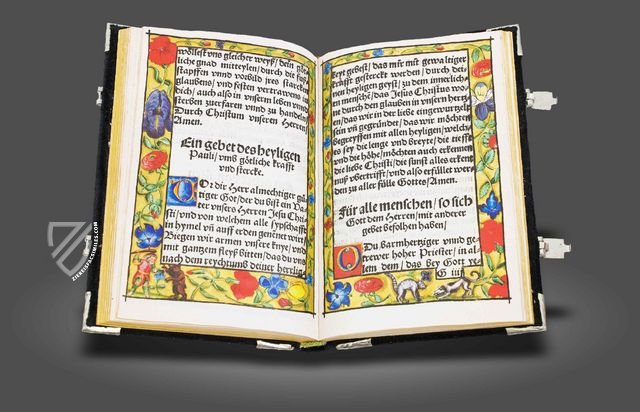 wöllest vns gleicher weyß/dein göt
liche gnad mitteylen/durch die fuß
stapffen vnnd vorbild jres starcken
glaubens/vnd festen vertrawens in
dich/auch also in vnserm leben vnnd
sterben zuerfaren vnnd zu handeln/
Durch Christum vnseren Herren/
Amen.
Ein gebet des heyligen
Pauli/vmb götliche krafft
vnd stercke.
Or dir Herr almechtiger gü
tiger Got/der du bist ein Va
ter vnsers Herren Jesu Chri
sti/vnd von welchem alle sypschafft
in hymel vñ auff erden genenet wirt/
Biegen wir armen vnsere knye/vnd
mit gantzem fleyß bitten/das du vns
nach dem reychtumb deiner herrlig
keyt gebest/das mir mit gewaltiger
krafft gesterckt werden/durch dei
nen heyligen geyst/zu dem innerlich
en mensche/das Jesus Christus wo
ne durch den glauben in vnsern hertz
en/das wir in der liebe eingewurtzelt
sein vñ gegründet/das wir möchten
begreyffen mit allen heyligen/welch
es sey die lenge vnd breyte/die tieffe
vnd die höhe/möchten auch erkennen
die liebe Christi/die sunst alles erkent
nuß vbertrifft/vnd also erfüllet werd
en zu aller fülle Gottes/Amen.
Für alle menschen/so sich
Gott dem Herren/mit anderer
gebet befolhen haben/
O Du barmhertziger vnnd ge
trewer hoher Priester/in al
lem dem/das bey Gott ze
G iiij
ZIEREIS FACSIMILES.COM